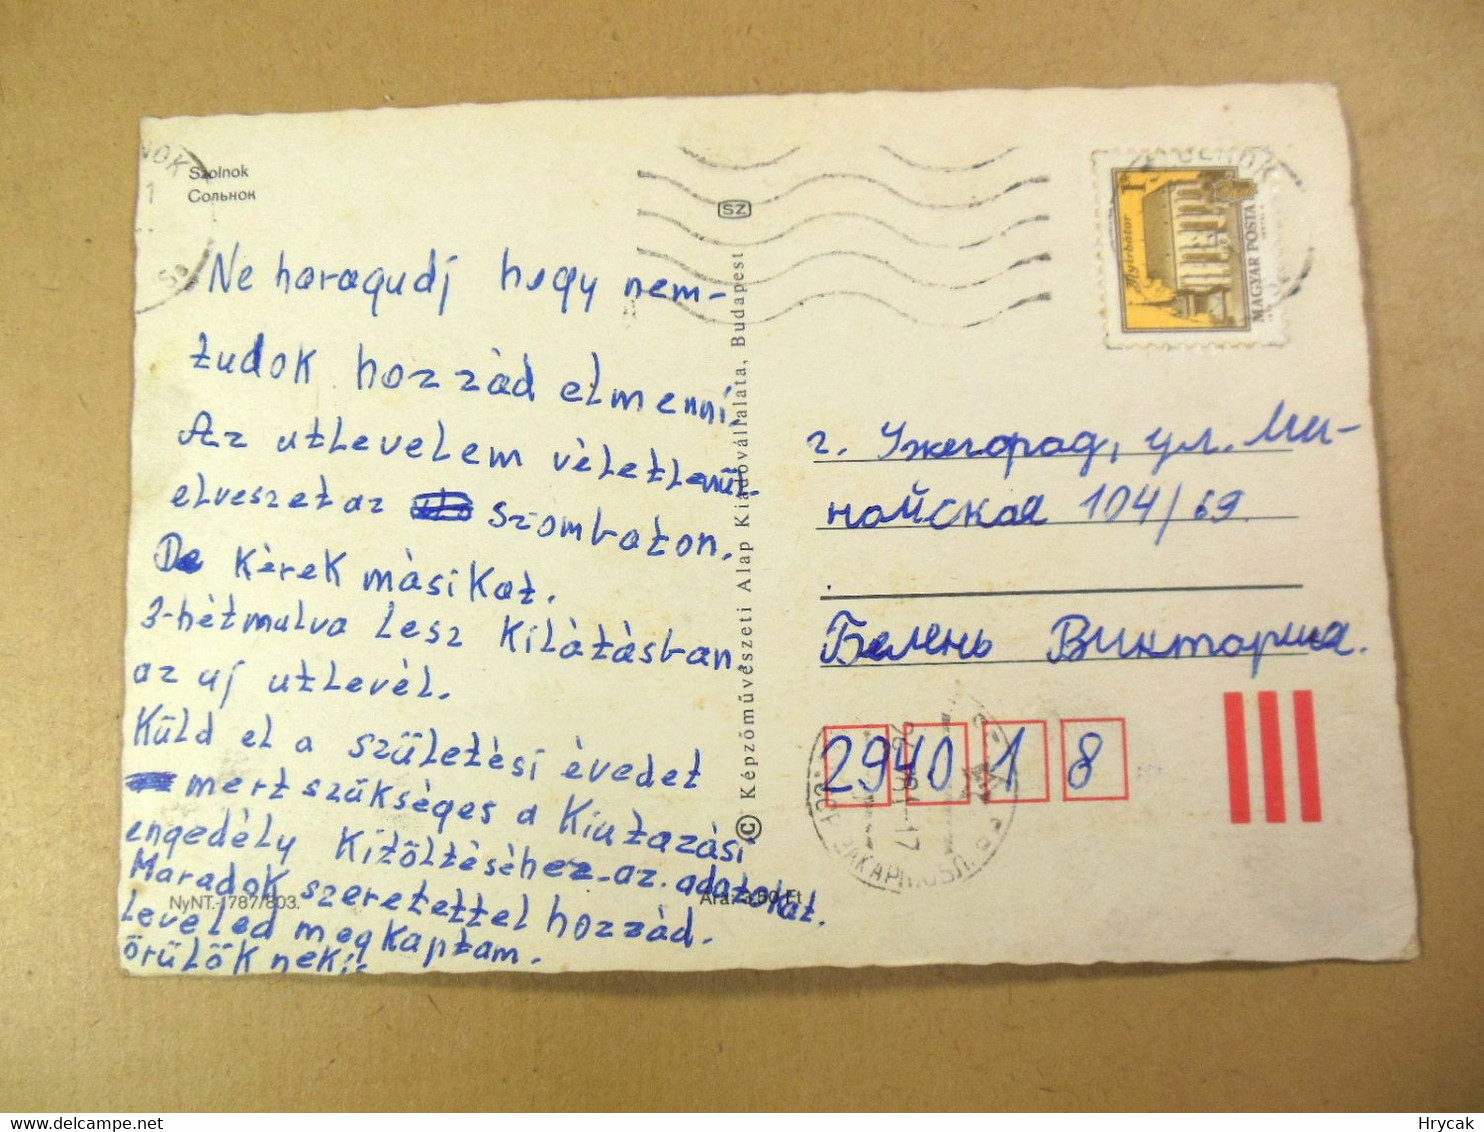 Szolnok
Сольнок
Ne haragudj hogy nem-
tudok hozzád elmenni.
Az utlevelem véletlenűl
elveszet az szombaton.
De kérek másikat.
3-hétmulva lesz kilátásban
az uj utlevél.
Küld el a születési évedet
mert szükséges a kiutazási
engedély kitöltéséhez-az. adatokat.
Maradok szeretettel hozzád.
Leveled megkaptam.
örülök neki
NyNT.-1787/803.
Ára: 3,50 Ft
SZ
© Képzőművészeti Alap Kiadóvállalata, Budapest
1
Nyírbátor
MAGYAR POSTA
г. Ужгород, ул. Ми-
найская 104/69.
Белень Виктория.
294018
delcampe.net
Hrycak